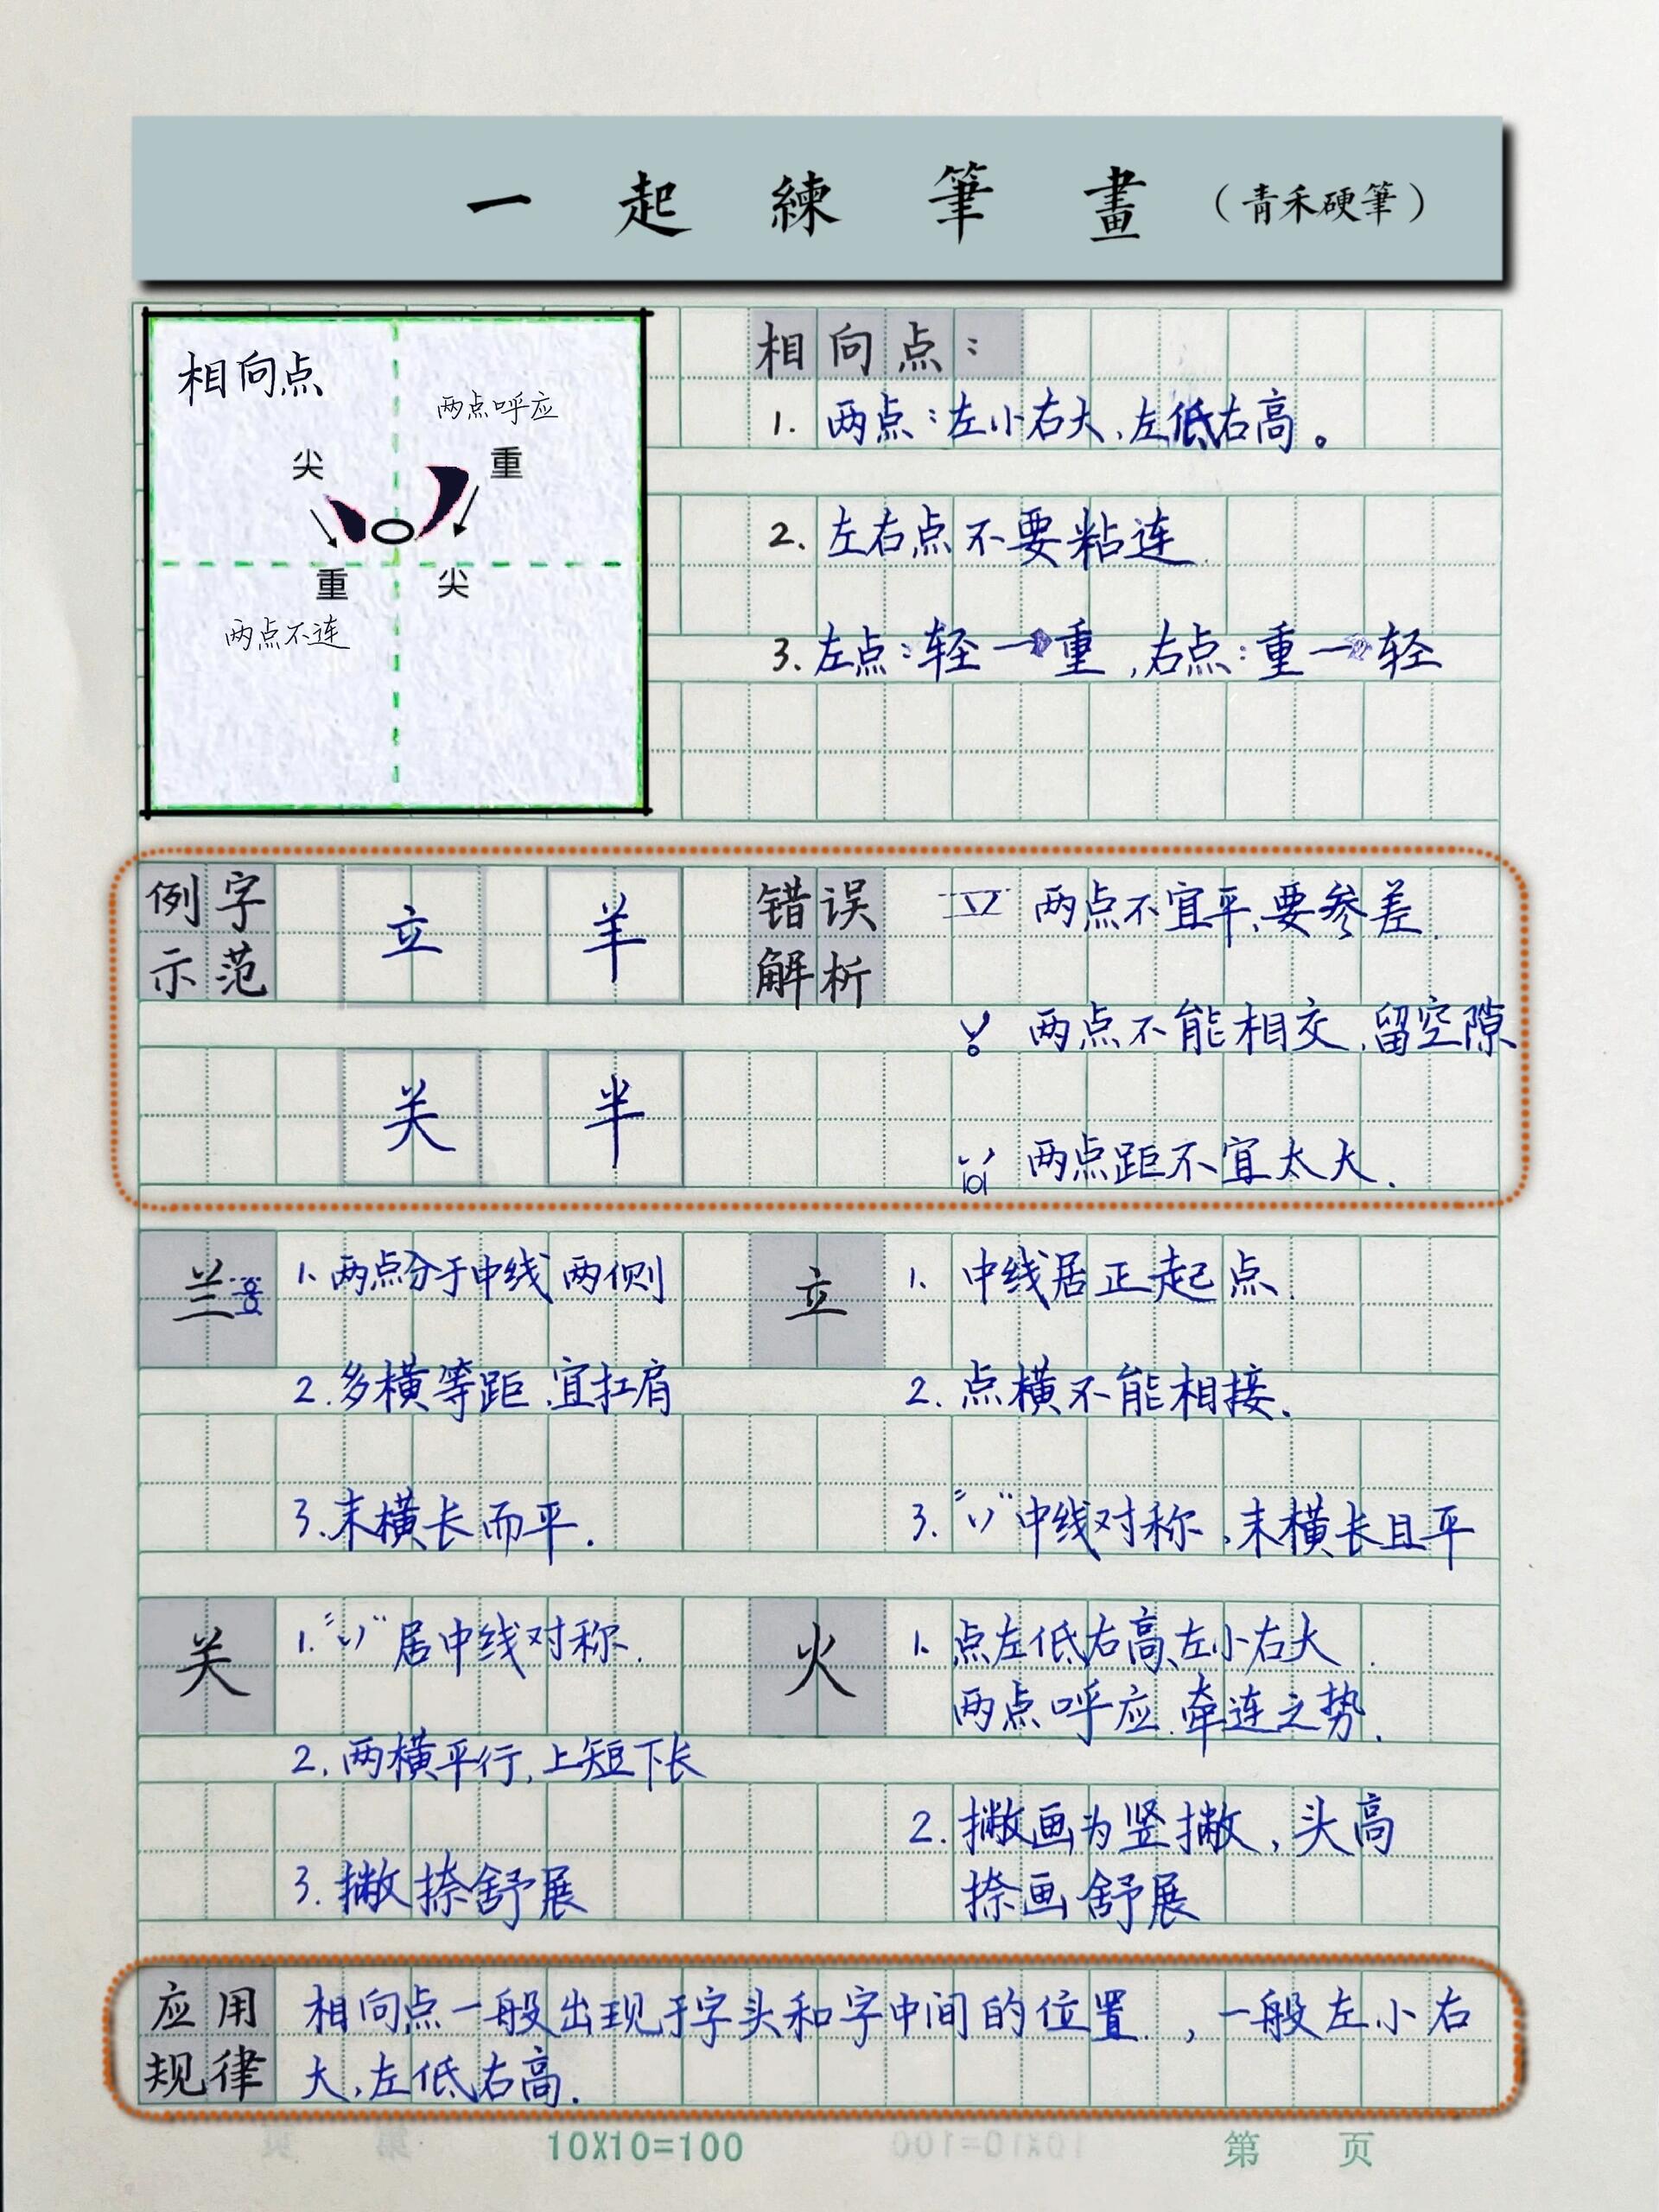 一起練筆畫（青禾硬筆）
相向点
两点呼应
尖 重
重 尖
两点不连
相向点：
1. 两点：左小右大、左低右高。
2. 左右点不要粘连
3. 左点：轻→重，右点：重→轻
例字
示范
立 羊
关 半
错误
解析
立 两点不宜平、要参差.
两点不能相交、留空隙
两点距不宜太大.
兰
1. 两点分于中线两侧
2. 多横等距、宜扛肩
3. 末横长而平.
立
1. 中线居正起点.
2. 点横不能相接.
3. “丷”中线对称，末横长且平
关
1. “丷”居中线对称.
2. 两横平行，上短下长
3. 撇捺舒展
火
1. 点左低右高、左小右大.
两点呼应、牵连之势.
2. 撇画为竖撇，头高
捺画舒展
应用
规律
相向点一般出现于字头和字中间的位置，一般左小右
大，左低右高.
10X10=100
第 页